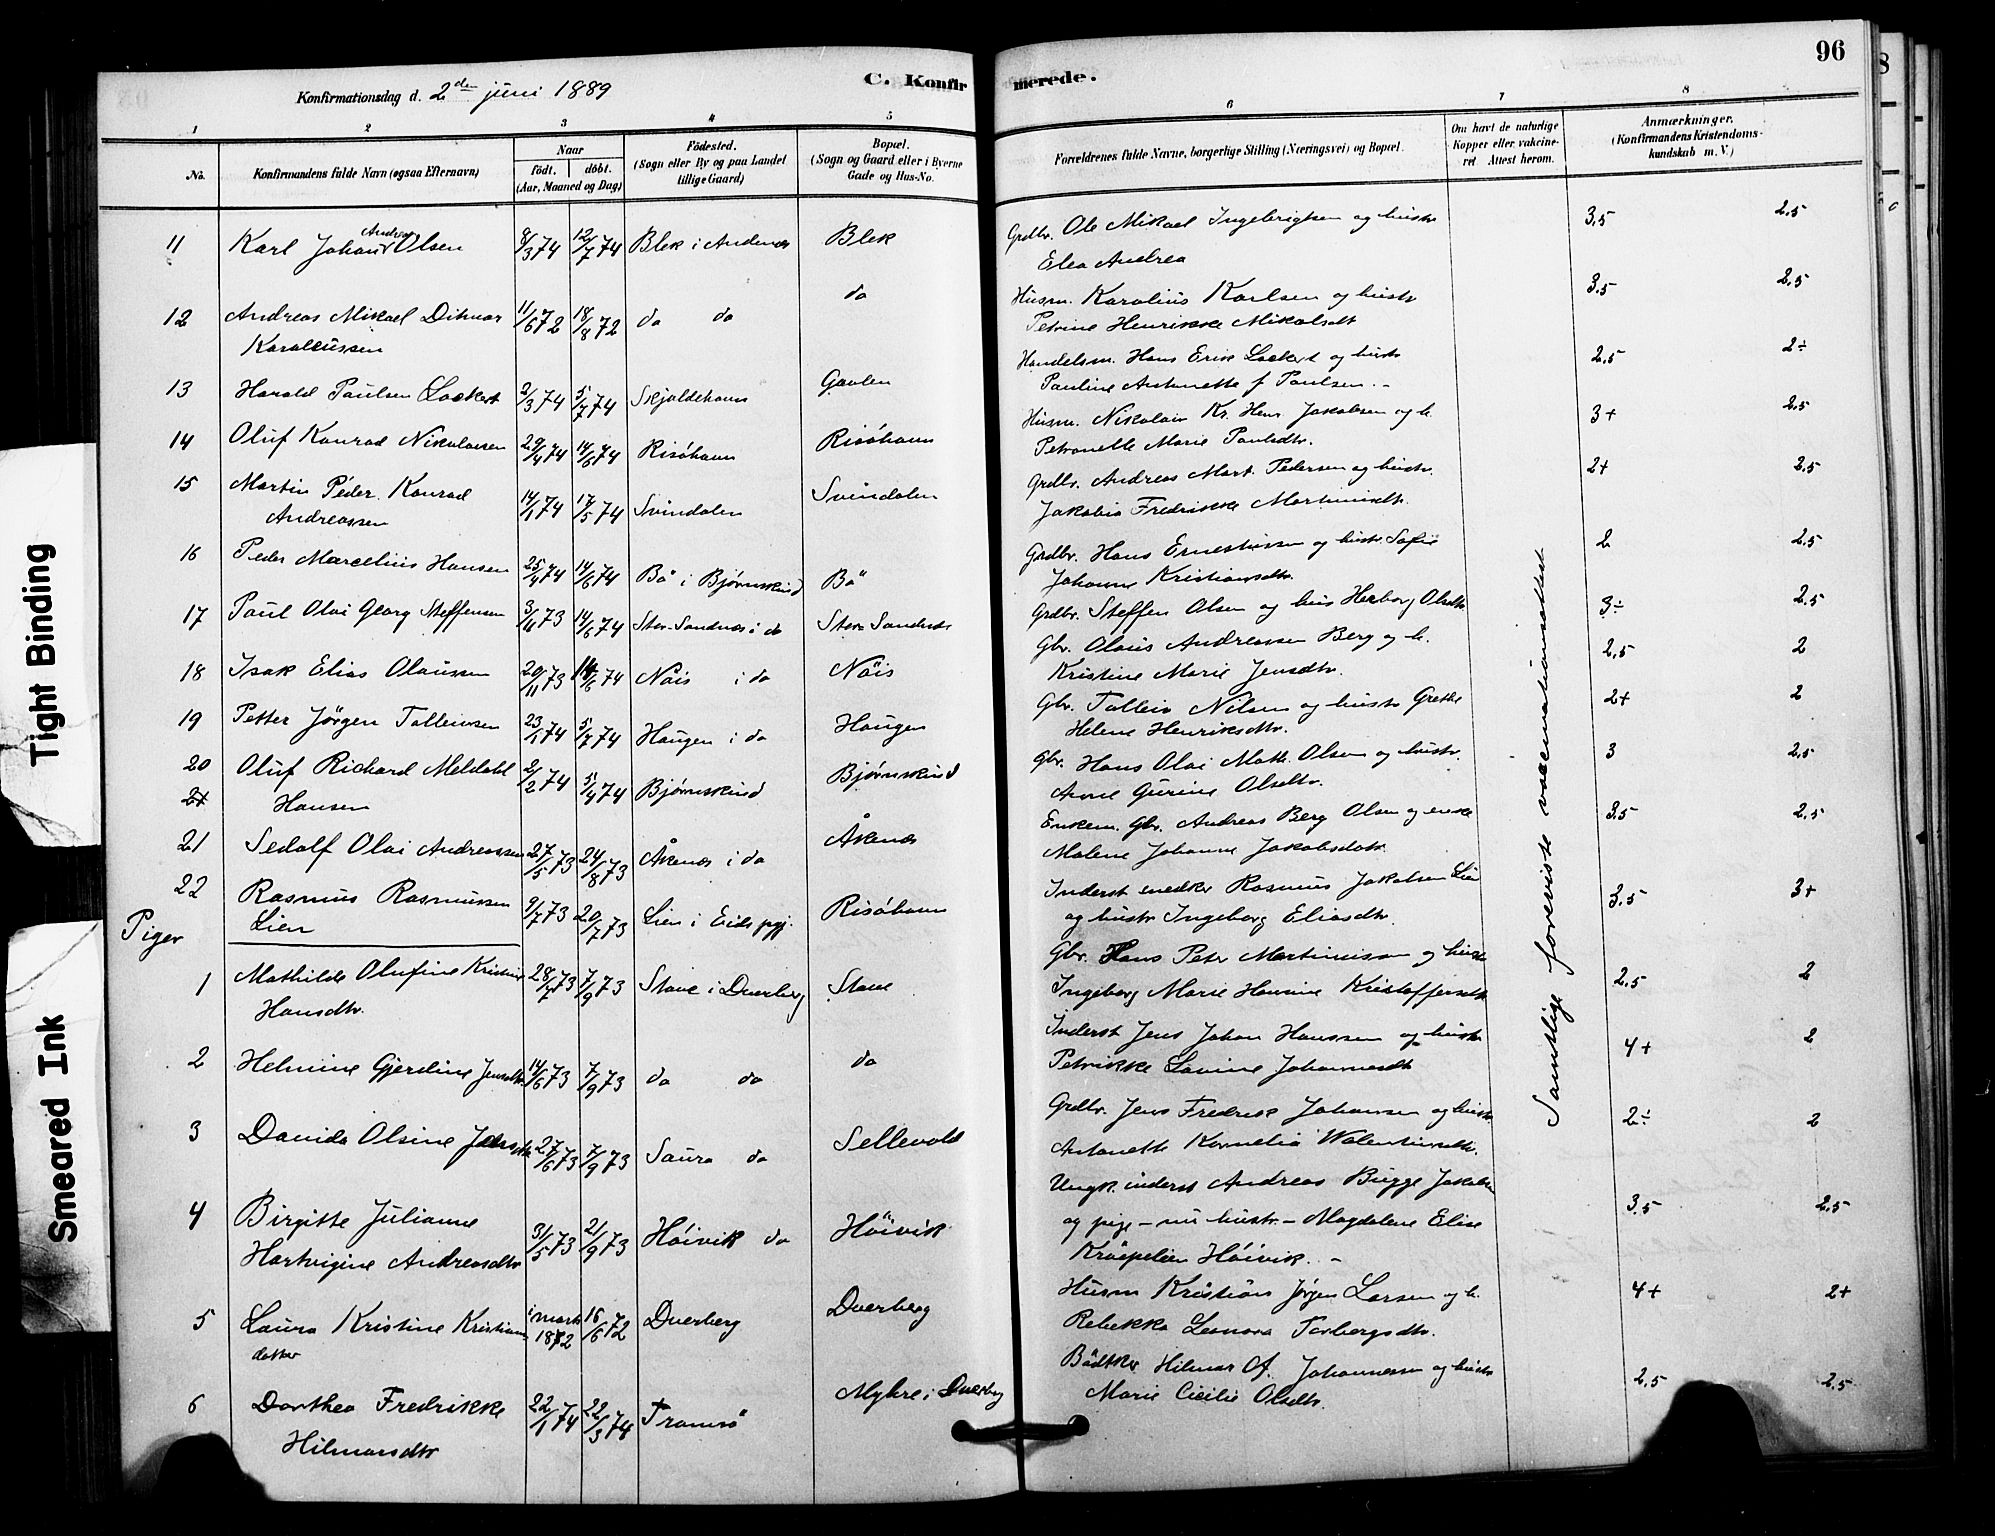 96
Konfirmationsdag d. 2den juni 1889
C. Konfirmerede.
1 2 3 4 5 6 7 8
No.
Konfirmandens fulde Navn (ogsaa Efternavn)
Naar
født. døbt.
(Aar, Maaned og Dag)
Fødested.
(Sogn eller By og paa Landet
tillige Gaard)
Bopæl.
(Sogn og Gaard eller i Byerne
Gade og Hus-No.
Forældrenes fulde Navne, borgerlige Stilling (Næringsvei) og Bopæl.
Om havt de naturlige
Kopper eller vakcine-
ret Attest herom.
Anmærkninger.
(Konfirmandens Kristendoms-
kundskab m. V.)
11 Karl Johan Andreas Olsen 8/3 74 12/7 74 Blek i Andenes Blek Grdbr. Ole Mikael Ingebrigtsen og hustr 3.5 2.5
Elea Andrea
12 Andreas Mikael Ditmar 11/6 72 18/8 72 do do do Husm. Karolius Karlsen og hustr 3.5 2.5
Karoliussen Petrine Henrikke Mikalsdt
13 Harald Paulsen Lockert 2/3 74 5/7 74 Skjoldehavn Gavlen Handelsm. Hans Erik Lockert og hustr 2.5 2÷
Pauline Antonette f Paulsen. -
14 Oluf Konrad Nikolaisen 29/4 74 14/6 74 Risöhavn Risöhavn Husm. Nikolai Kr. Hans Jakobsen og h. 3+ 2.5
Petronelle Marie Paulsdtr.
15 Martin Peder Konrad 14/1 74 17/5 74 Svindalen Svindalen Grdbr. Andreas Mart. Pedersen og hustr. 2+ 2.5
Andreassen Jakobia Fredrikke Martinusdtr.
16 Peder Marcelius Hansen 25/4 74 14/6 74 Bö i Bjørnskind Bö Grdbr. Hans Ernestussen og hustr. Sofie 2 2.5
Johanna Kristiansdtr.
17 Paul Olai Georg Steffensen 3/11 73 14/6 74 Stor-Sandnes i do Stor Sandnes Grdbr. Steffen Olsen og hus Herborg Olsdtr 3÷ 2.5
18 Isak Elias Olaussen 20/11 73 14/6 74 Nöis i do Nöis Gbr. Olaus Andreassen Berg og h. 2.5 2
Kristine Marie Jensdtr.
19 Petter Jörgen Tolleivsen 23/1 74 5/7 74 Haugen i do Haugen Gbr. Tolleiv Nilsen og hustr Grethe 2+ 2
Helene Henriksdtr.
20 Oluf Richard Meldahl 2/2 74 5/4 74 Bjørnskind Bjørnskind Gbr. Hans Olai Math. Olsen og hustr. 3 2.5
21 Hansen Anne Gurine Olsdtr.
21 Sedolf Olai Andreassen 27/5 73 24/8 73 Åkenes i do Åkenes Enkem. Gbr. Andreas Berg Olsen og enke 3.5 2.5
Malene Johanna Jakobsdatr.
22 Rasmus Rasmussen 9/7 73 20/7 73 Lien i Eids pgj. Risöhavn Inderst snedker Rasmus Jakobsen Lien 3.5 3+
Lien og hustr Ingeborg Eliasdtr.
Piger
1 Mathilde Olufine Kristine 28/7 73 7/9 73 Stave i Dverberg Stave Gbr. Hans Peter Martinussen og hustr 2.5 2
Hansdtr. Ingeborg Marie Hansine Kristoffersdtr
2 Helmine Gjerdine Jensdtr. 14/6 73 7/9 73 do do do Inderst Jens Johan Hanssen og hustr 4+ 2
Petrikke Lovine Johannesdt
3 Davida Olsine Jensdtr 27/6 73 7/9 73 Saura do Sellevold Grdbr. Jens Fredrik Johansen og hustr. 2÷ 2
Antonette Kornelia Walentinsdtr.
4 Birgitte Julianne 31/5 73 21/9 73 Höivik do Höivik Ungk. inderst Andreas Bugge Jakobsen 3.5 2.5
Hartvigine Andreasdtr og pige - nu hustr. - Magdalene Elise
Kröepelien Höivik. -
5 Laura Kristine Kristians i marts 1872 16/6 72 Dverberg Dverberg Husm Kristian Jørgen Larsen og h. 4+ 2+
datter Rebekka Leonora Torbergsdtr.
6 Dorthea Fredrikke 22/1 74 22/3 74 Tromsö Myhre i Dverberg Bödtker Hilmar Of. Johannessen og hustr 2.5 2.5
Hilmarsdtr Marie Cecilie Olsdtr.
Samtlige foreviste vaccinationsattest
Tight Binding
Smeared Ink